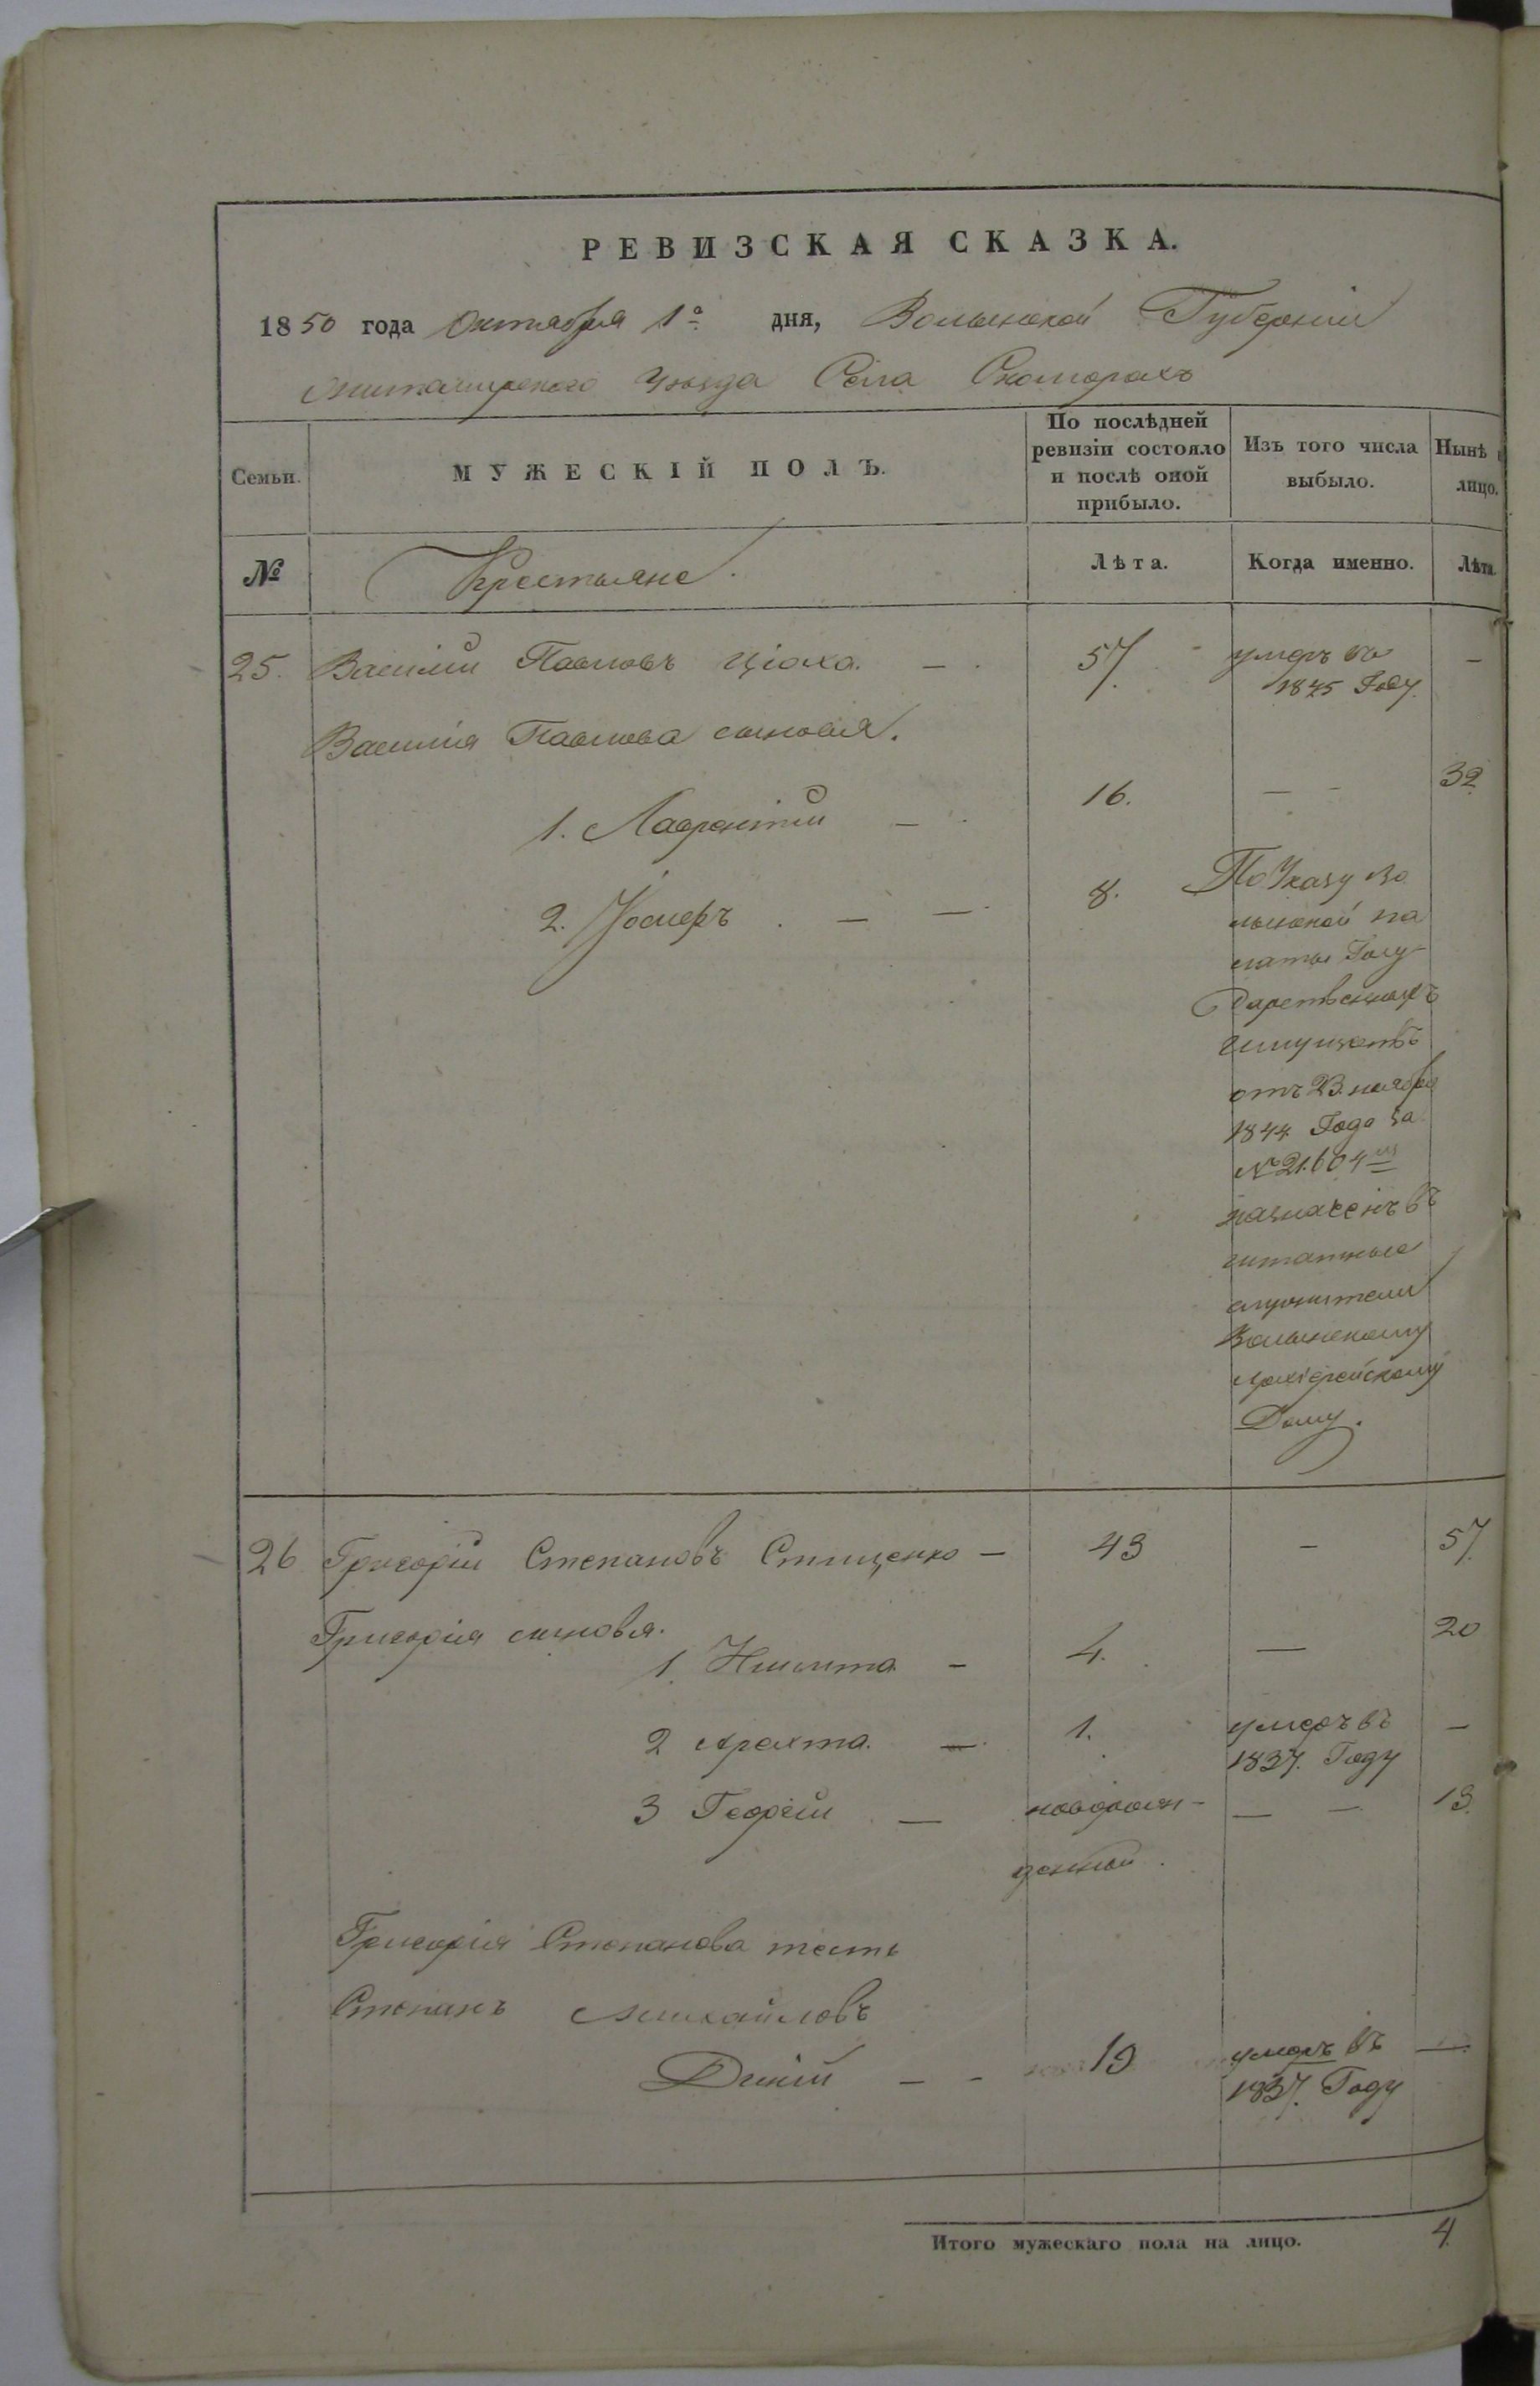 РЕВИЗСКАЯ СКАЗКА.
1850 года Октября 1го дня, Волынской Губерніи
Житомирского Уѣзда Села Скоморохъ
Семьи.
МУЖЕСКІЙ ПОЛЪ.
По послѣдней ревизіи состояло и послѣ оной прибыло.
Изъ того числа выбыло.
Нынѣ
лицо.
№ Крестьяне. Лѣта. Когда именно. Лѣта.
25. Василій Павловъ Ціоха. — 57. умеръ въ —
1845 Году.
Василія Павлова сыновья.
1. Лаврентій — 16. — — 32
2. Іосифъ — — 8. По Указу Во
лынской па
латы Госу
дарственныхъ
имуществъ
отъ 23. ноября
1844 Года за
№ 21.604 м
назначенъ въ
штатные
служители
Волынскому
Архіерейскому
Дому.
26 Григорій Степановъ Стищенко — 43 — 57.
Григорія сыновья.
1. Никита — 4. — 20
2 — 1. умеръ въ —
1837. Году
3 Георгій — новорож- — — 13.
денный.
Григорія Степанова тесть
Степанъ Михайловъ
Дикій — — 19 умеръ въ —
1837. Году
Итого мужескаго пола на лицо. 4.